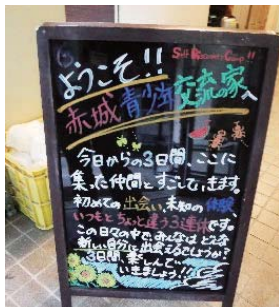 ようこそ!!
Self Discovery Camp!!
赤城青少年交流の家へ
今日からの3日間、ここに
集った仲間とすごしていきます。
初めての出会い、未知の体験
いつもとちょっと違う3連休です。
この日々の中で、みんなはどんな
新しい自分に出会えるでしょうか?
3日間、楽しんで
いきましょう!!